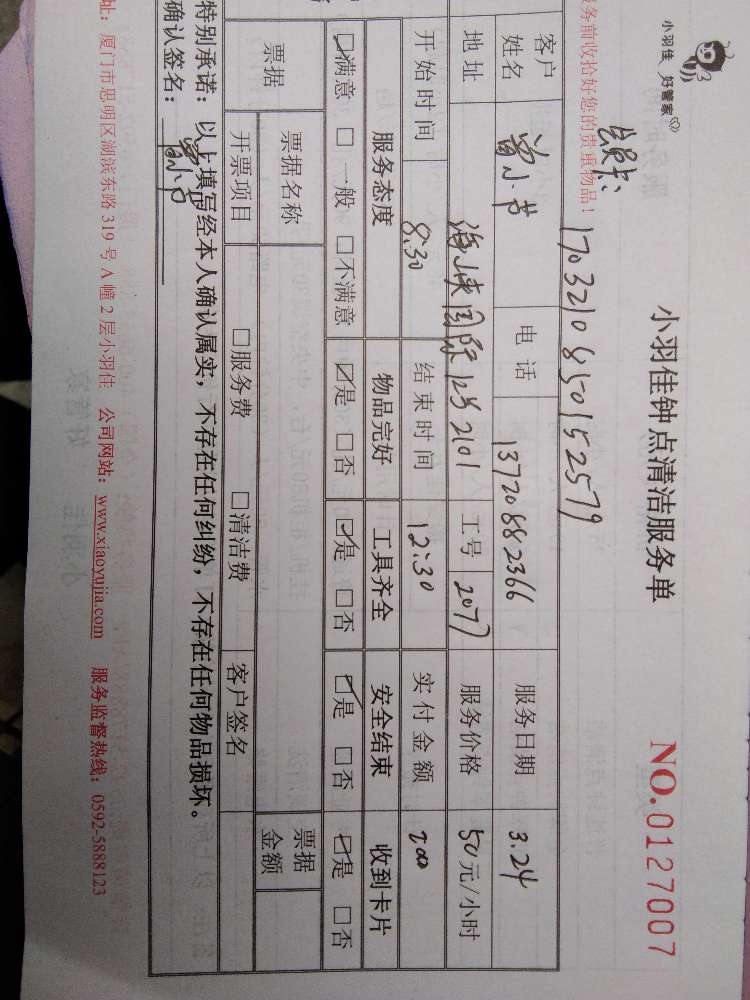 小羽佳 好管家
小羽佳钟点清洁服务单
NO.0127007
务前收拾好您的贵重物品!
1703210850152579
客户姓名 曾小芳 电话 13720882366 服务日期 3.24
地址 海峡国际 2101 工号 2077 服务价格 50元/小时
开始时间 8:30 结束时间 12:30 实付金额 200
服务态度 物品完好 工具齐全 安全结束 收到卡片
☑满意 □一般 □不满意 ☑是 □否 ☑是 □否 ☑是 □否 ☑是 □否
票据 票据名称 票据金额
开票项目 □服务费 □清洁费 客户签名
特别承诺:以上填写经本人确认属实,不存在任何纠纷,不存在任何物品损坏。
确认签名:
址:厦门市思明区湖滨东路 319 号 A 幢 2 层小羽佳 公司网站:www.xiaoyujia.com 服务监督热线:0592-5888123